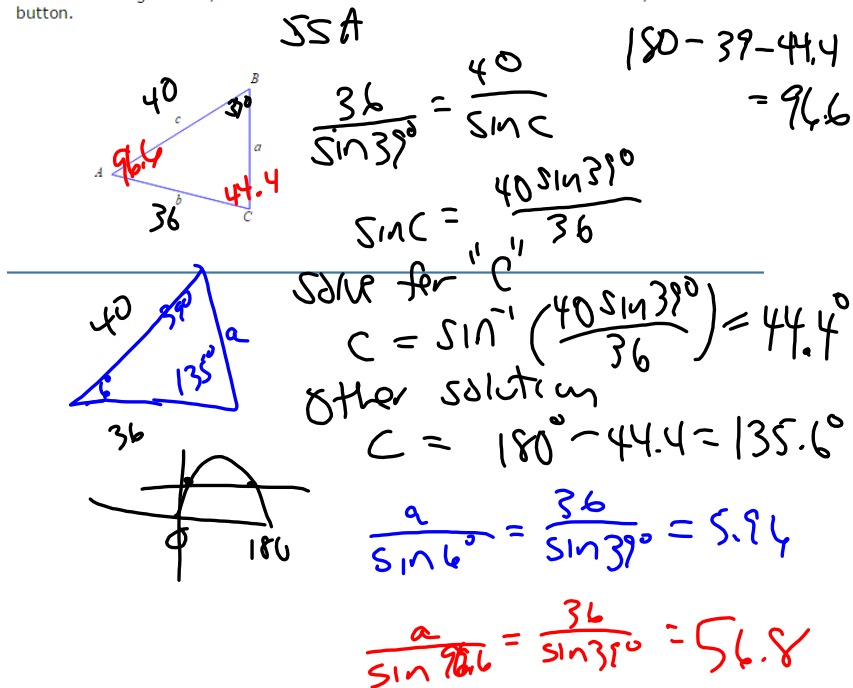 button.
SSA
180-39-44.4
= 96.6
40
B
39°
c
a
A
96.6
b
36
44.4
C
36/sin39° = 40/sinC
sinC = 40sin39°/36
solve for "C"
C = sin⁻¹(40sin39°/36) = 44.4°
other solution
C = 180° - 44.4 = 135.6°
40
39°
a
6°
135°
36
0
180
a/sin6° = 36/sin39° = 5.96
a/sin96.6 = 36/sin39° = 56.8